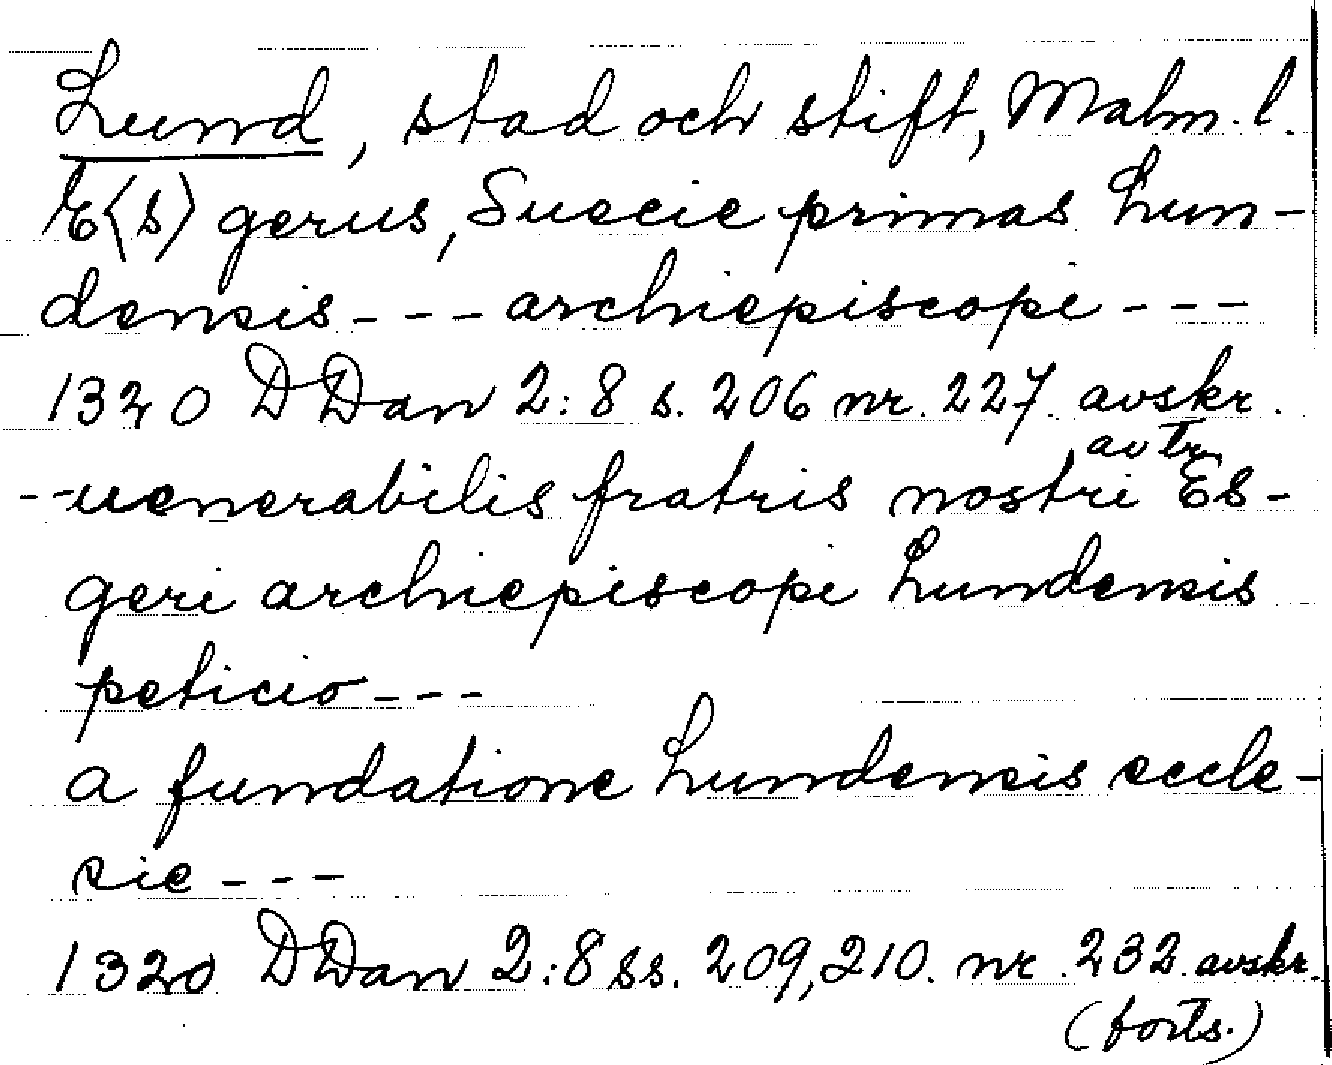 Lund, stad och stift, Malm. l.
E⟨s⟩gerus, Suecie primas Lun-
densis - - - archiepiscopi - - -
1320 DDan 2:8 s. 206 nr. 227. avskr.
av tr.
- - uenerabilis fratris nostri Es-
geri archiepiscopi Lundensis
peticio - - -
a fundatione Lundensis eccle-
sie - - -
1320 DDan 2:8 ss. 209, 210. nr. 232. avskr.
(forts.)